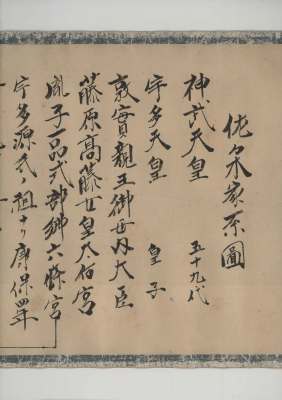 佐々木家系圖
神武天皇 五十九代
宇多天皇 皇子
敦實親王御母内大臣
藤原高藤女皇太后宮
胤子一品式部卿六條宮
宇多源氏祖ナリ康保四年